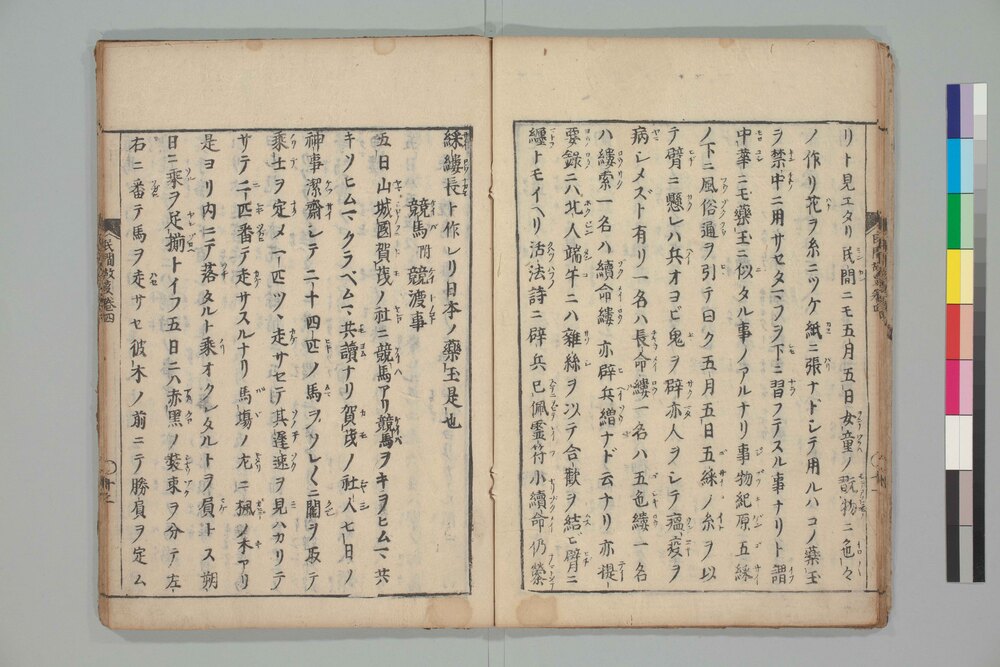 リト見エタリ民間ニモ五月五日女童ノ翫物ニ色々
ノ作リ花ヲ糸ニツケ紙ニ張ナドシテ用ルハコノ藥玉
ヲ禁中ニ用サセタマフヲ下ニ習フテスル事ナリト謂
中華ニモ藥玉ニ似タル事ノアルナリ事物紀原五綵
ノ下ニ風俗通ヲ引テ曰ク五月五日五綵ノ糸ヲ以
テ臂ニ懸レハ兵オヨビ鬼ヲ辟亦人ヲシテ瘟疫ヲ
病シメズト有リ一名ハ長命縷一名ハ五色縷一名
ハ縷索一名ハ續命縷亦辟兵繒ナド云ナリ亦提
要錄ニハ北人端午ニハ雜絲ヲ以テ合歡ヲ結ヒ臂ニ
纏トモイヘリ活法詩ニ辟兵已佩靈符小續命仍縈
綵縷長ト作レリ日本ノ藥玉是也
競馬附競渡事
五日山城國賀茂ノ社ニ競馬アリ競馬ヲキヲヒムマ共
キソヒムマクラベムマ共讀ナリ賀茂ノ社人七日ノ
神事潔齋シテ二十四匹ノ馬ヲソレ〱ニ鬮ヲ取テ
乘士ヲ定メ一匹ツヽ走サセテ其遲速ヲ見ハカリテ
サテ二匹番テ走サスルナリ馬塲ノ左ニ楓ノ木アリ
是ヨリ内ニテ落タルト乘オクレタルトヲ負トス朔
日ニ乘ヲ足揃トイフ五日ニハ赤黑ノ裝束ヲ分テ左
右ニ番テ馬ヲ走サセ彼木ノ前ニテ勝負ヲ定ム
民間故事卷四